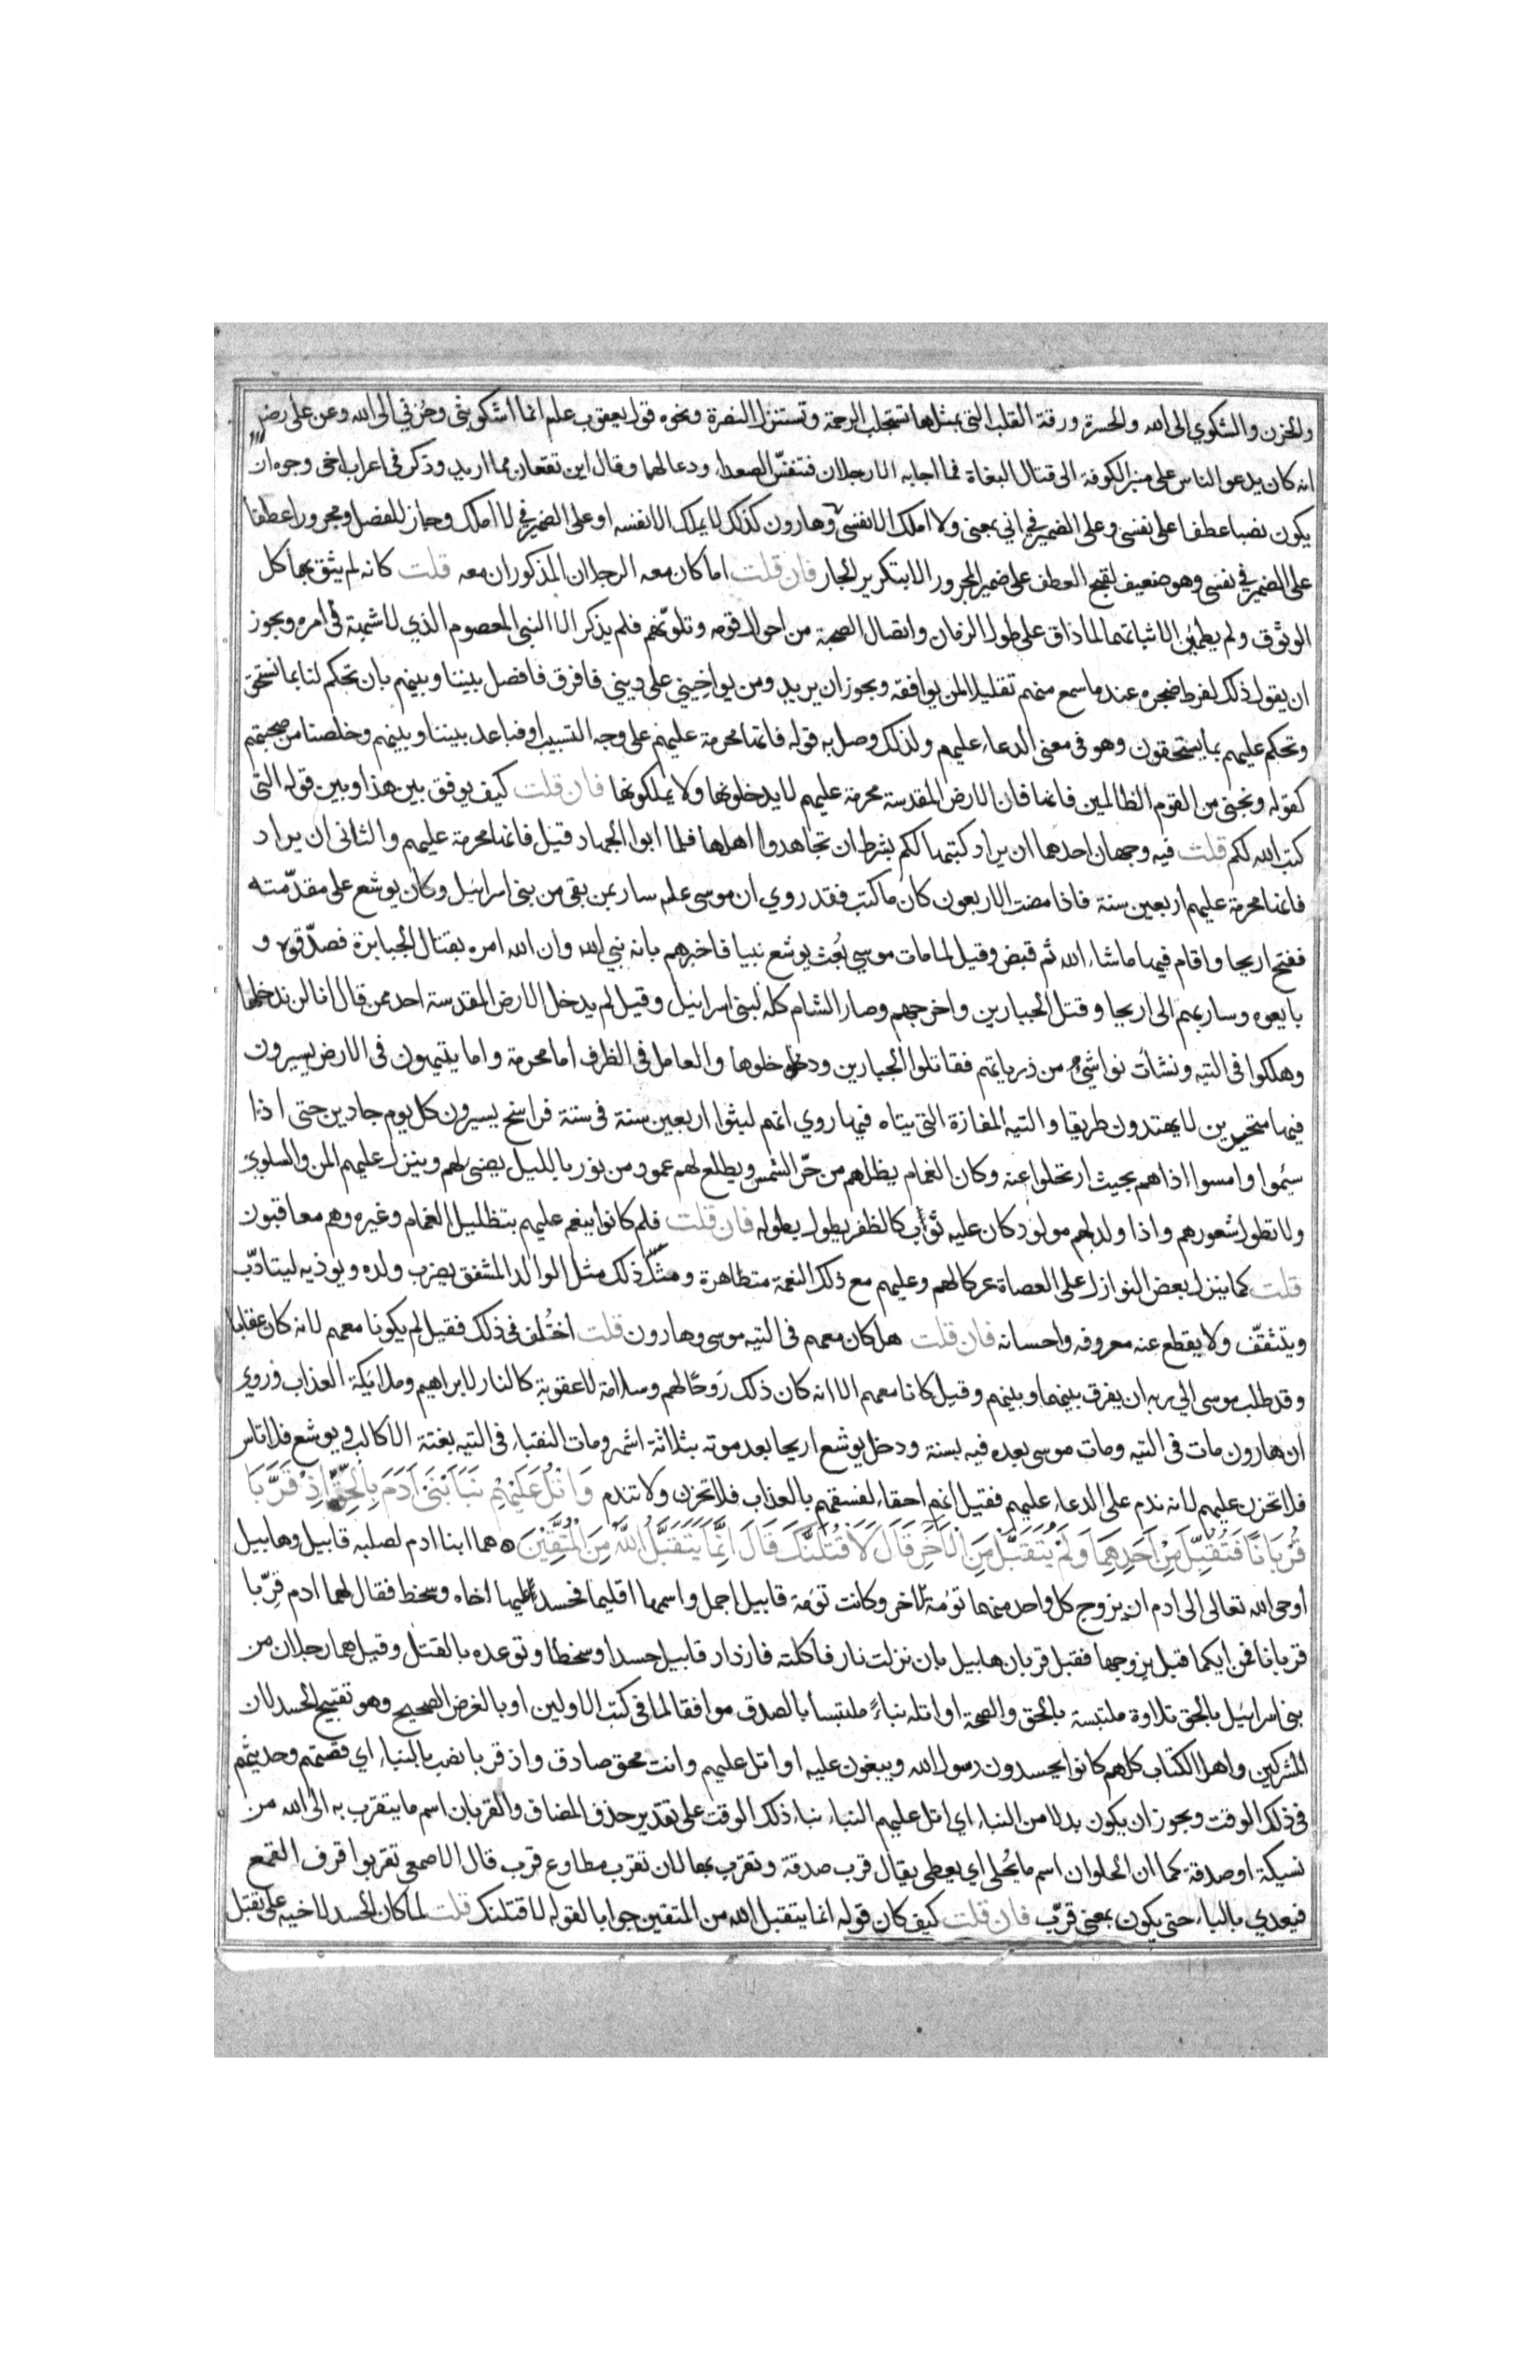 والحزن والشكوي الى الله والحسرة ورقة القلب التى بمثلها تستجلب الرحمة وتستنزل النصرة ونحوه قول يعقوب علم انما اشكو بثى وحزني الى الله وعن على رضى
انه كان يدعو الناس على منبر الكوفة الى قتال البغاة فما اجابه الا رجلان فتنفس الصعداء ودعا لهما وقال اين تقعان مما اريد وذكر فى اعراب اخى وجوه ان
يكون نصبا عطفا على نفسى وعلى الضمير في اني بمعنى ولا املك الا نفسى وهارون كذلك لا يملك الا نفسه او على الضمير في لا املك وجاز للفصل ومجرورا عطفا
على الضمير في نفسى وهو ضعيف لقبح العطف على ضمير المجرور الا بتكرير الجار فان قلت اما كان معه الرجلان المذكوران معه قلت كانه لم يثق بهما كل
الوثوق ولم يطمئن الى ثباتهما لما ذاق على طول الزمان واتصال الصحبة من احوال قومه وتلونهم فلم يذكر الا النبى المعصوم الذي لا شبهة فى امره ويجوز
ان يقول ذلك لفرط ضجره عند ما سمع منهم تقليلا لمن يوافقه ويجوز ان يريد ومن يواخينى على دينى فافرق فافصل بيننا وبينهم بان تحكم لنا بما نستحق
وتحكم عليهم بما يستحقون وهو فى معنى الدعاء عليهم ولذلك وصل به قوله فانها محرمة عليهم على وجه التسبيب او فباعد بيننا وبينهم وخلصنا من صحبتهم
كقوله ونجنى من القوم الظالمين فانها فان الارض المقدسة محرمة عليهم لا يدخلونها ولا يملكونها فان قلت كيف يوفق بين هذا وبين قوله التى
كتب الله لكم قلت فيه وجهان احدهما ان يراد كتبها لكم بشرط ان تجاهدوا اهلها فلما ابوا الجهاد قيل فانها محرمة عليهم والثانى ان يراد
فانها محرمة عليهم اربعين سنة فاذا مضت الاربعون كان ما كتب فقد روي ان موسى علم سار بمن بقى من بنى اسرائيل وكان يوشع على مقدّمته
ففتح اريحا واقام فيها ما شاء الله ثم قبض وقيل لما مات موسى بُعث يوشع نبيا فاخبرهم بانه نبي الله وان الله امره بقتال الجبابرة فصدّقوه و
بايعوه وسار بهم الى اريحا وقتل الجبارين واخرجهم وصار الشام كله لبنى اسرائيل وقيل لم يدخل الارض المقدسة احد ممن قال انا لن ندخلها
وهلكوا فى التيه ونشأت نواشئ من ذرياتهم فقاتلوا الجبارين ودخلوها والعامل فى الظرف اما محرمة واما يتيهون فى الارض يسيرون
فيها متحيرين لا يهتدون طريقا والتيه المفازة التى يتاه فيها روي انهم لبثوا اربعين سنة فى ستة فراسخ يسيرون كل يوم جادين حتى اذا
سئموا وامسوا اذا هم بحيث ارتحلوا عنه وكان الغمام يظلهم من حرّ الشمس ويطلع لهم عمود من نور بالليل يضئ لهم وينزل عليهم المن والسلوي
ولا تطول شعورهم واذا ولد لهم مولود كان عليه ثوب كالظفر يطول بطوله فان قلت فلم كانوا ينعم عليهم بتظليل الغمام وغيره وهم معاقبون
قلت كما ينزل بعض النوازل على العصاة عركا لهم وعليهم مع ذلك النعمة متظاهرة ومثل ذلك مثل الوالد المشفق يضرب ولده ويوذيه ليتادّب
ويتثقّف ولا يقطع عنه معروفه واحسانه فان قلت هل كان معهم فى التيه موسى وهارون قلت اختُلف فى ذلك فقيل لم يكونا معهم لانه كان عقابا
وقد طلب موسى الي ربه ان يفرق بينهما وبينهم وقيل كانا معهم الا انه كان ذلك رَوحًا لهم وسلامة لا عقوبة كالنار لابراهيم وملائكة العذاب وروي
ان هارون مات فى التيه ومات موسى بعده فيه بسنة ودخل يوشع اريحا بعد موته بثلاثة اشهر ومات النقباء فى التيه بغتة الا كالب ويوشع فلا تاس
فلا تحزن عليهم لانه ندم على الدعاء عليهم فقيل انهم احقاء لفسقهم بالعذاب فلا تحزن ولا تندم وَاتْلُ عَلَيْهِمْ نَبَأَ ابْنَىْ اٰدَمَ بِالْحَقِّ اِذْ قَرَّبَا
قُرْبَانًا فَتُقُبِّلَ مِنْ اَحَدِهِمَا وَلَمْ يُتَقَبَّلْ مِنَ الْاٰخَرِ قَالَ لَاَقْتُلَنَّكَ قَالَ اِنَّمَا يَتَقَبَّلُ اللّٰهُ مِنَ الْمُتَّقِيْنَ ۝ هما ابنا ادم لصلبه قابيل وهابيل
اوحى الله تعالى الى ادم ان يزوج كل واحد منهما تومة الاخر وكانت تومة قابيل اجمل واسمها اقليما فحسد عليها اخاه وسخط فقال لهما ادم قرّبا
قربانا فمن ايكما قبل يزوجها فقبل قربان هابيل بان نزلت نار فاكلته فازداد قابيل حسدا وسخطا وتوعده بالقتل وقيل هما رجلان من
بنى اسرائيل بالحق تلاوة ملتبسة بالحق والصحة او اتله نباءً ملتبسا بالصدق موافقا لما فى كتب الاولين او بالغرض الصحيح وهو تقبيح الحسد لان
المشركين واهل الكتاب كلهم كانوا يحسدون رسول الله ويبغون عليه او اتل عليهم وانت محق صادق واذ قربا نصب بالنباء اي قصتهم وحديثهم
فى ذلك الوقت ويجوز ان يكون بدلا من النباء اي اتل عليهم النباء نباء ذلك الوقت على تقدير حذف المضاف والقربان اسم ما يتقرب به الى الله من
نسيكة او صدقة كما ان الحلوان اسم ما يُحلى اي يعطى يقال قرب صدقة وتقرب بها لان تقرب مطاوع قرب قال الاصمعى تقربوا قرف القمع
فيعدي بالباء حتى يكون بمعنى قرّب فان قلت كيف كان قوله انما يتقبل الله من المتقين جوابا لقوله لاقتلنك قلت لما كان الحسد لاخيه على تقبل